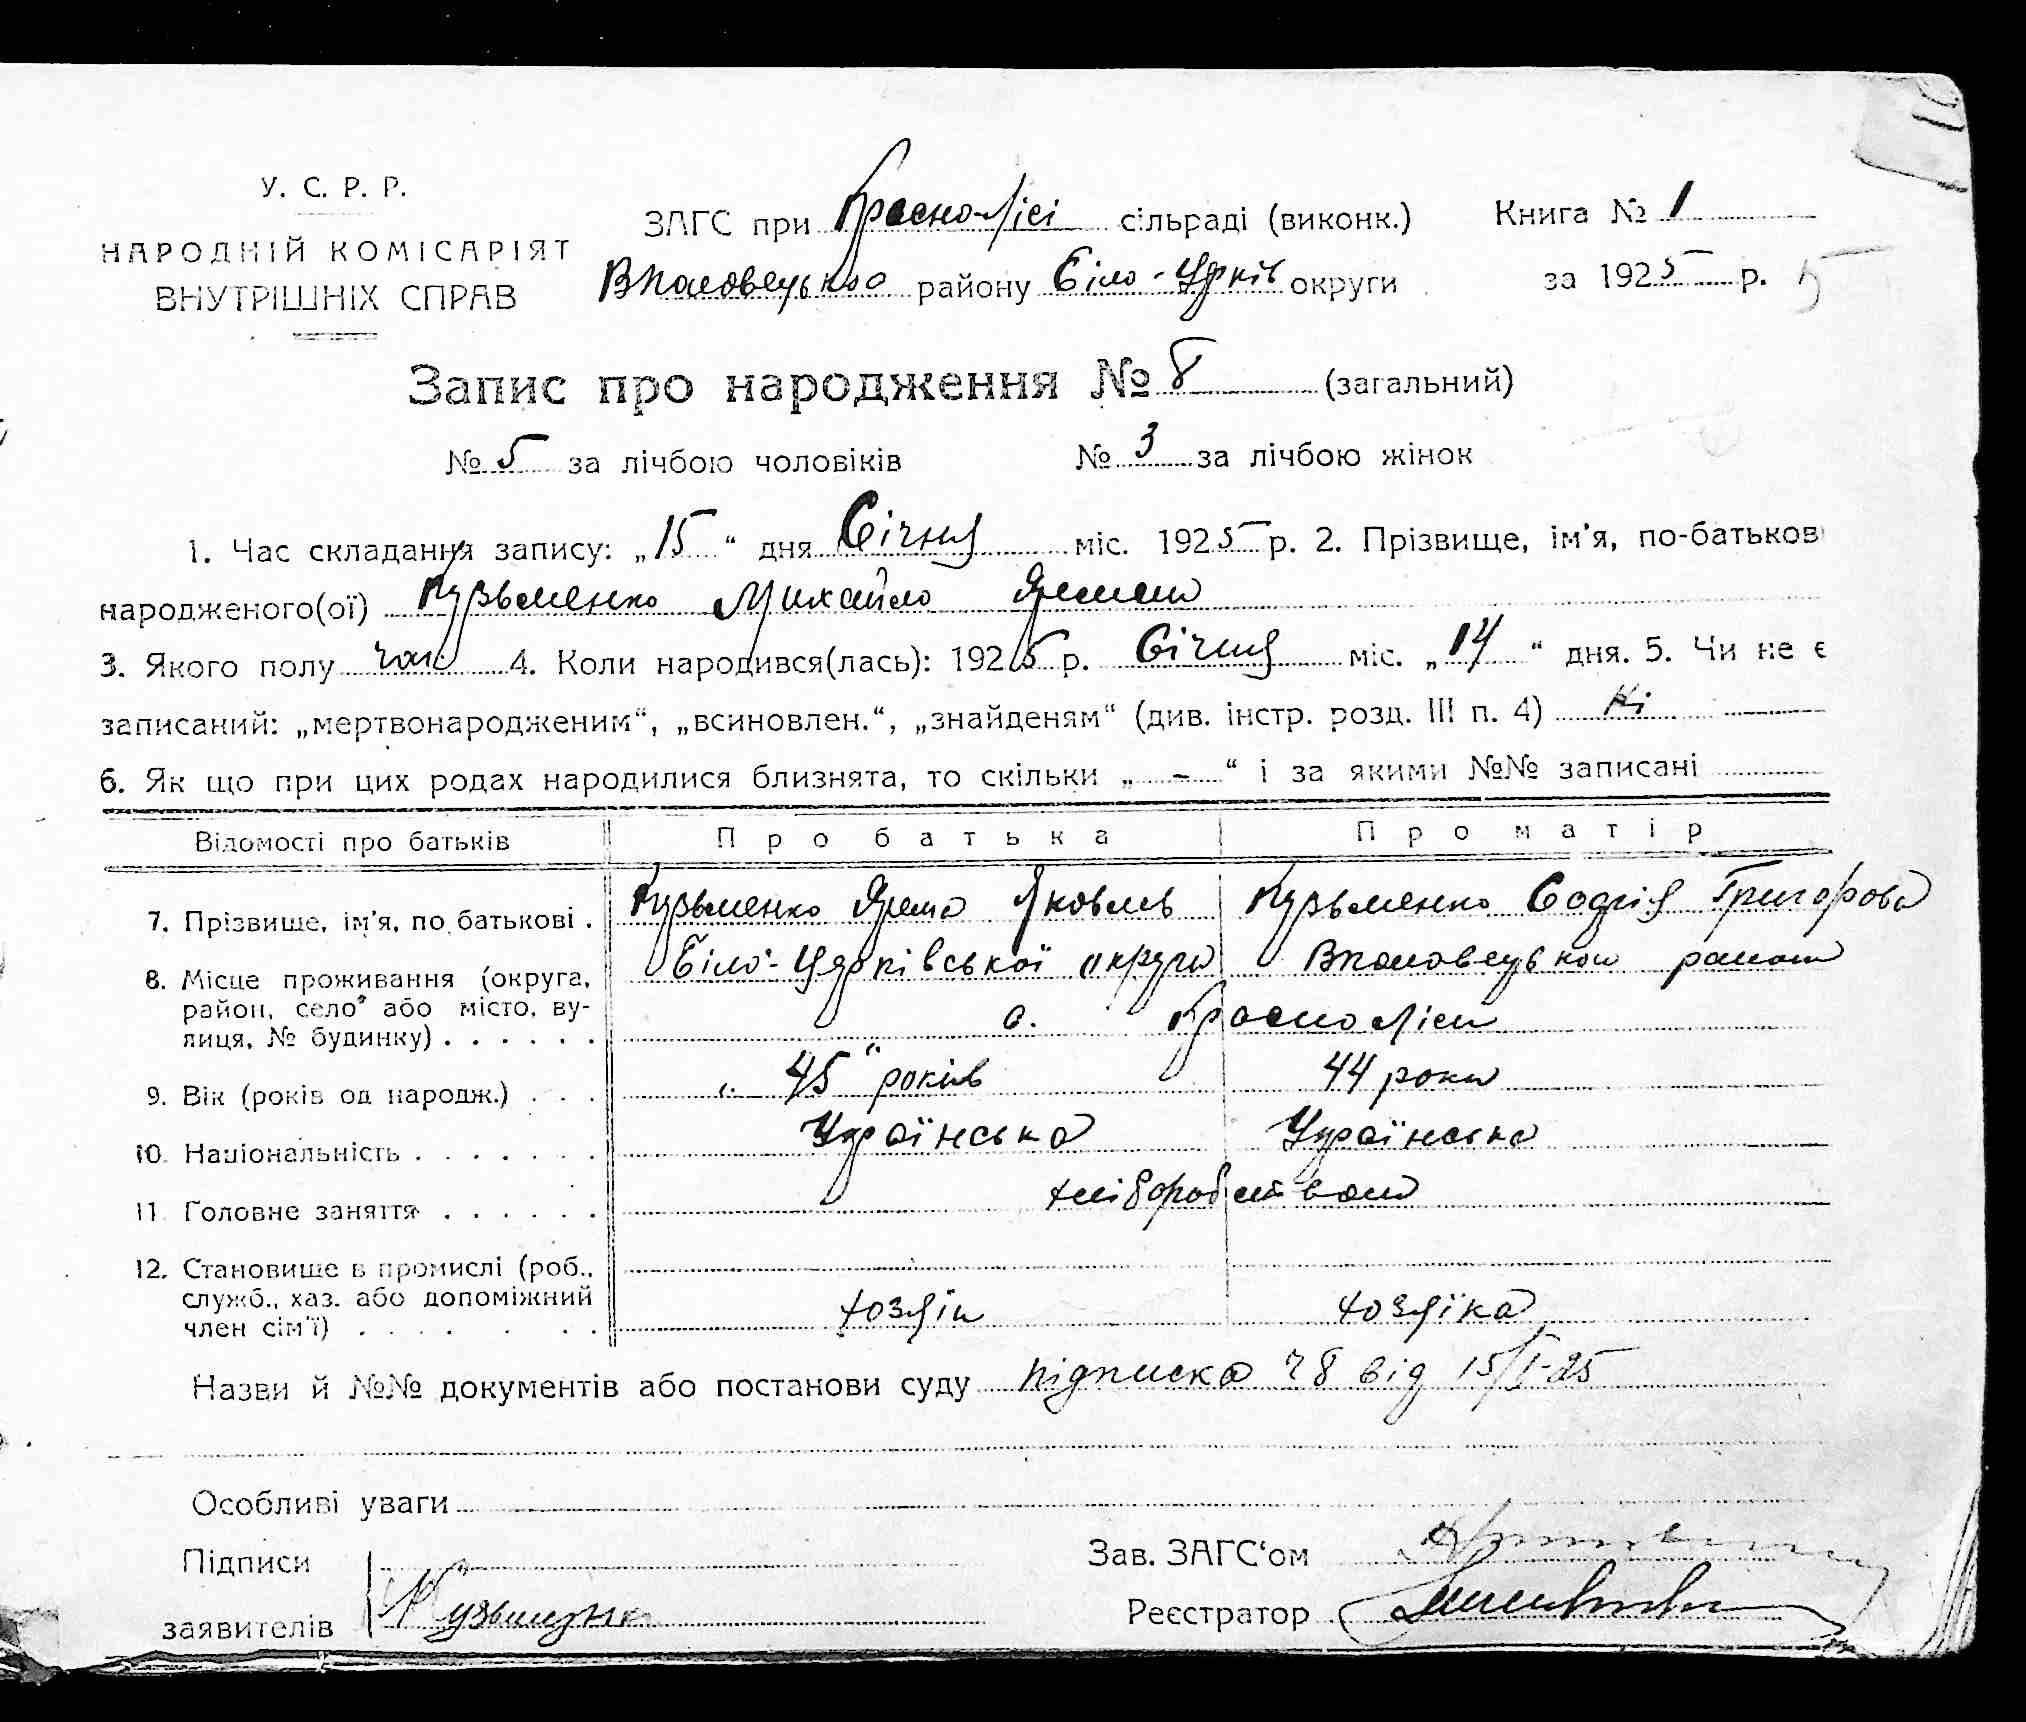 У. С. Р. Р.
НАРОДНІЙ КОМІСАРІЯТ
ВНУТРІШНІХ СПРАВ
ЗАГС при Красно-Лісі сільраді (виконк.)
район у Біло-Церків округи
Книга № 1
за 1925 р. 5
Запис про народження № 8 (загальний)
№ 5 за лічбою чоловіків № 3 за лічбою жінок
1. Час складання запису: „15“ дня Січня міс. 1925 р. 2. Прізвище, ім'я, по-батьков
народженого(ої) Кузьменко Михайло Яремов
3. Якого полу чол. 4. Коли народився(лась): 1925 р. Січня міс. „14“ дня. 5. Чи не є
записаний: „мертвонародженим“, „всиновлен.“, „знайденям“ (див. інстр. розд. III п. 4) Ні
6. Як що при цих родах народилися близнята, то скільки „ - “ і за якими №№ записані
Відомості про батьків Про батька Про матір
7. Прізвище, ім'я, по батькові . Кузьменко Ярема Яковлев Кузьменко Софія Григорова
8. Місце проживання (округа, район, село або місто, вулиця, № будинку) . . . . . . Біло-Церківської округи
с. Красно Ліси
9. Вік (років од народж.) . . . „ 45 “ років 44 роки
10. Національність . . . . . . . Українська Українська
11. Головне заняття . . . . . . хліборобством
12. Становище в промислі (роб., служб., хаз. або допоміжний член сім'ї) . . . . . . . хозяїн хозяїка
Назви й №№ документів або постанови суду підписка ч 8 від 15/I-25
Особливі уваги
Підписи
заявителів Кузьменко
Зав. ЗАГС'ом
Реєстратор